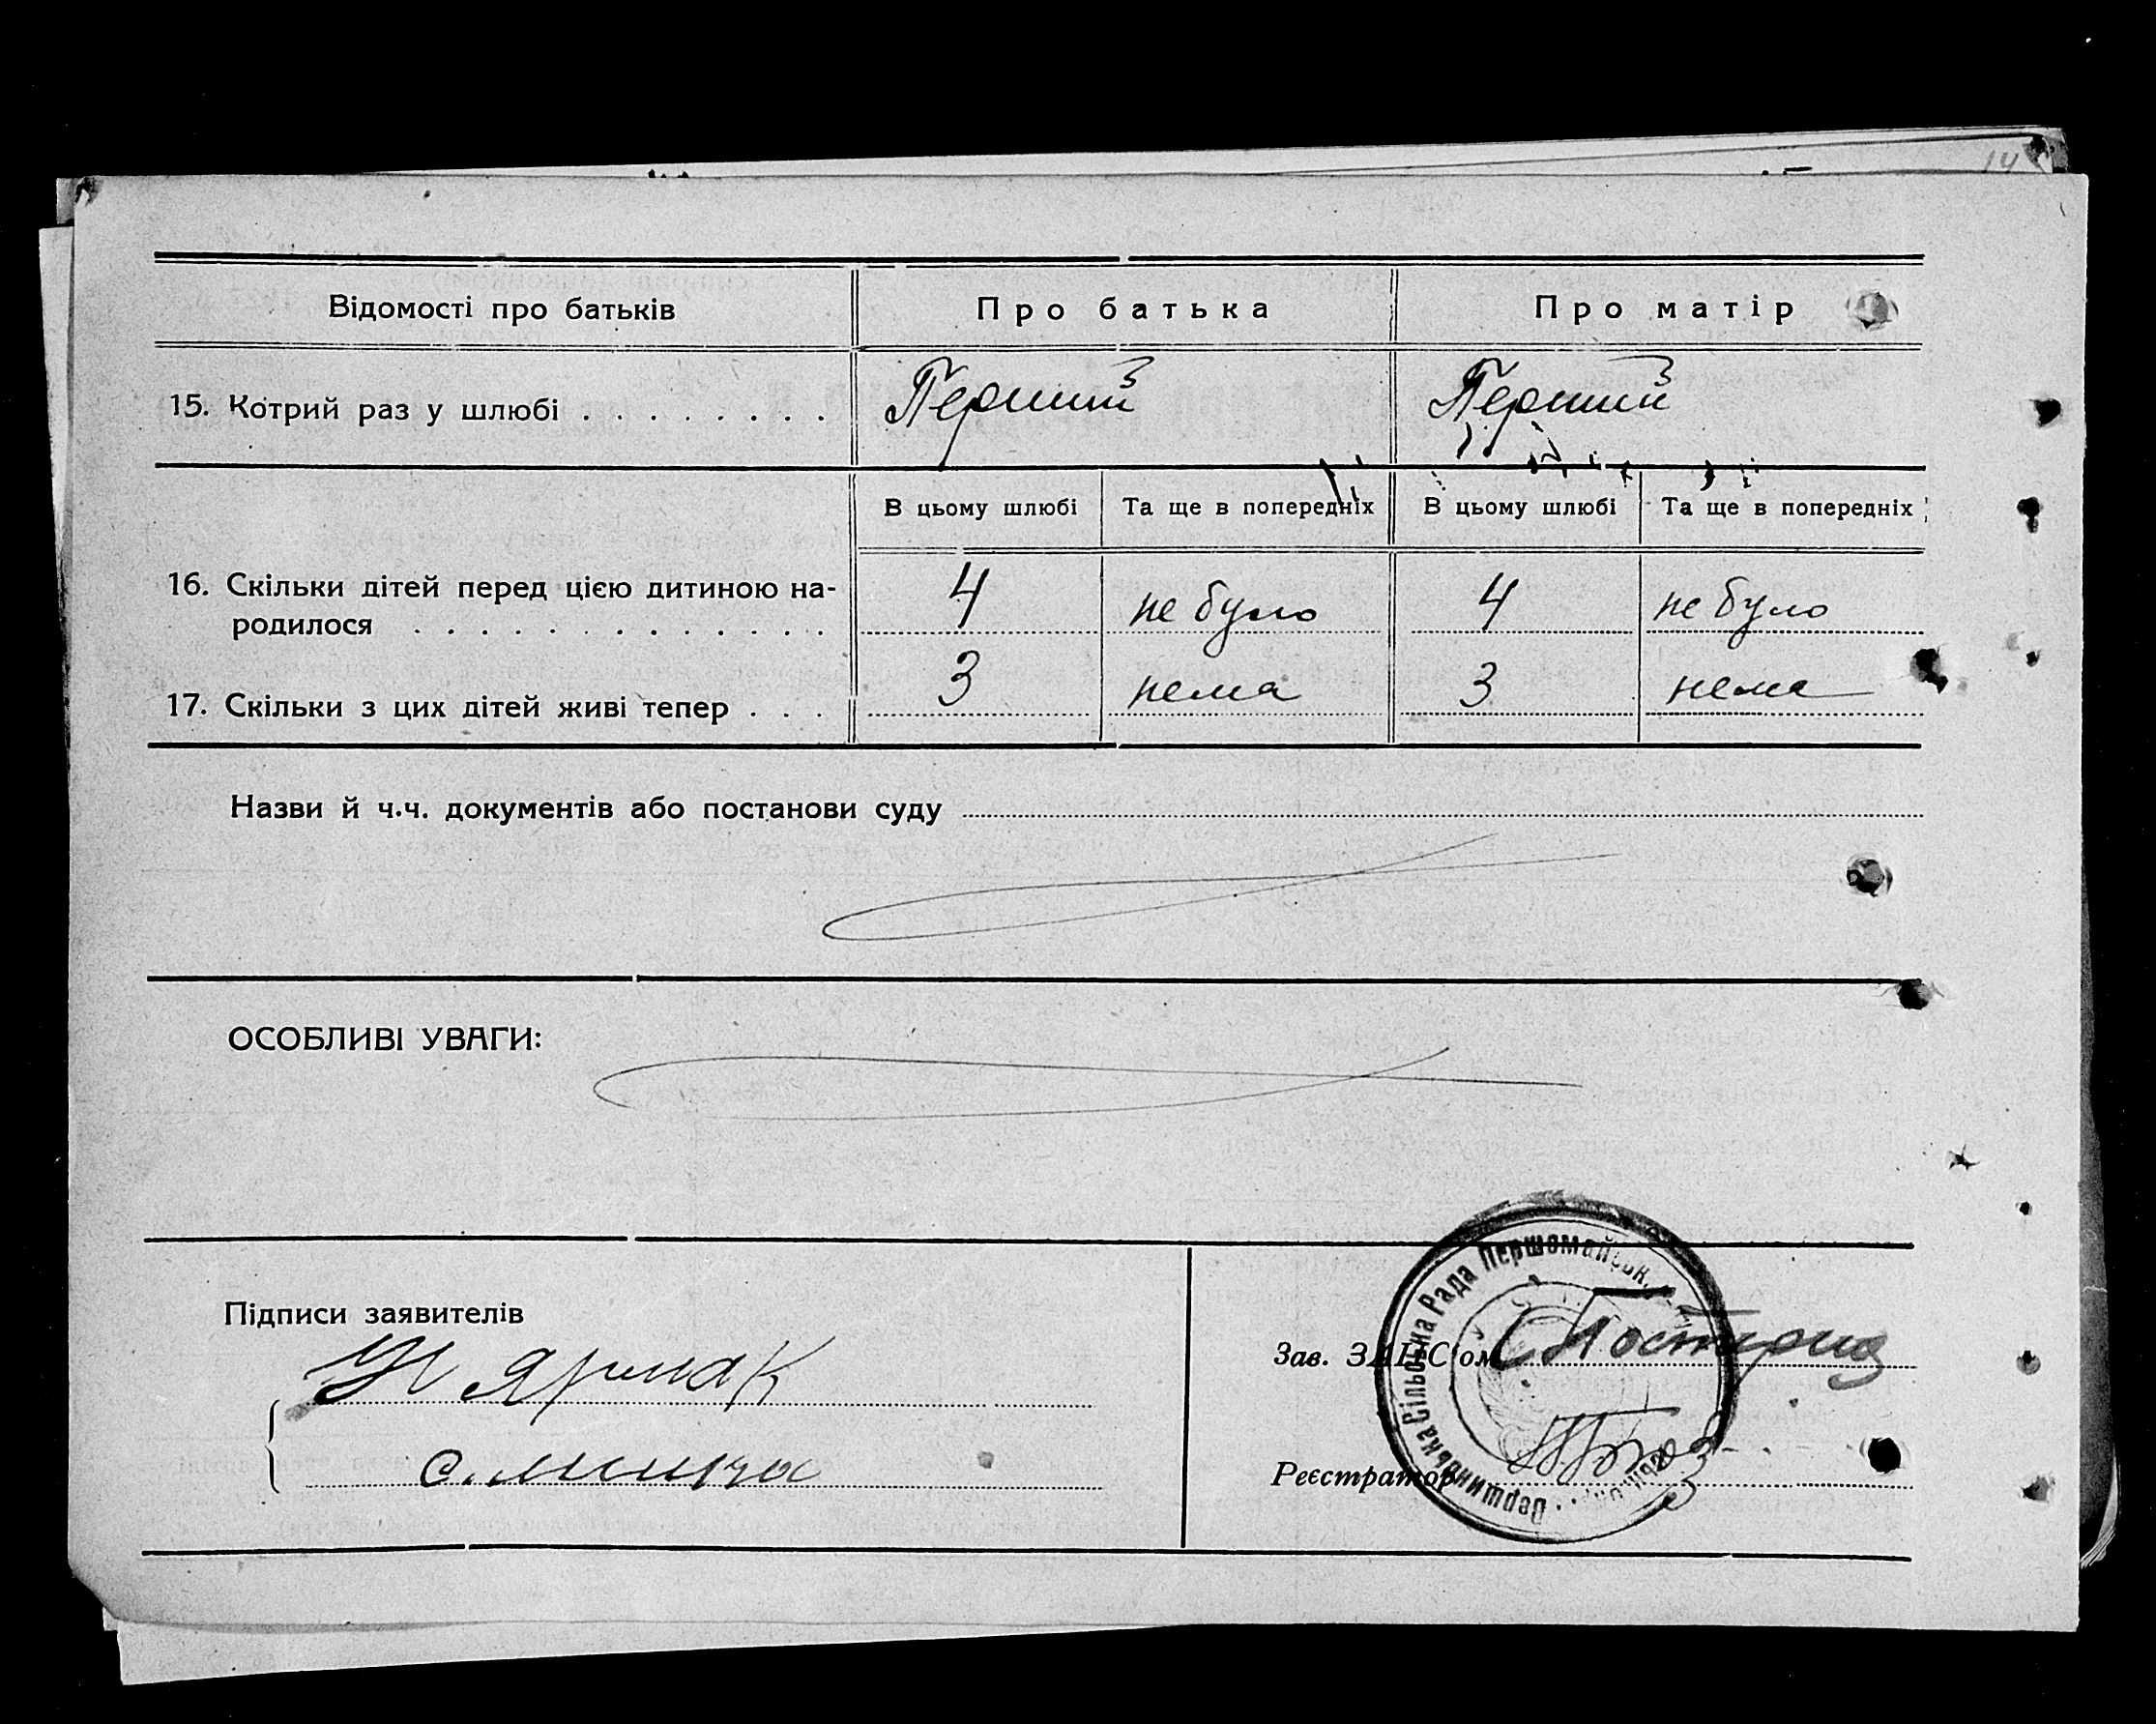 14
Відомості про батьків
Про батька
Про матір
15. Котрий раз у шлюбі . . . . . . . .
Перший
Перший
В цьому шлюбі
Та ще в попередніх
В цьому шлюбі
Та ще в попередніх
16. Скільки дітей перед цією дитиною на-
родилося . . . . . . . . . . . . .
4
не було
4
не було
17. Скільки з цих дітей живі тепер . . .
3
нема
3
нема
Назви й ч.ч. документів або постанови суду
ОСОБЛИВІ УВАГИ:
Підписи заявителів
Ярмак
Зав. ЗАГС'ом
Реєстратор
Сільська Рада Першомайськ.